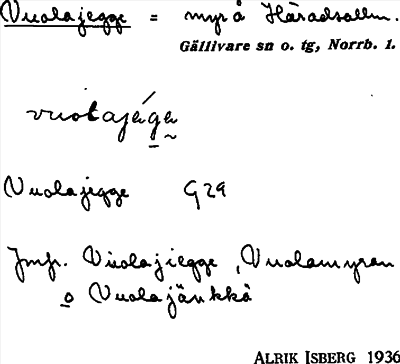 Vuolajegge = myr å Häradsallm.
Gällivare sn o. tg, Norrb. l.
vuolajéga
Vuolajegge G29
Jmf. Vuolajiegge, Vuolamyran
o Vuolajänkkä
ALRIK ISBERG 1936